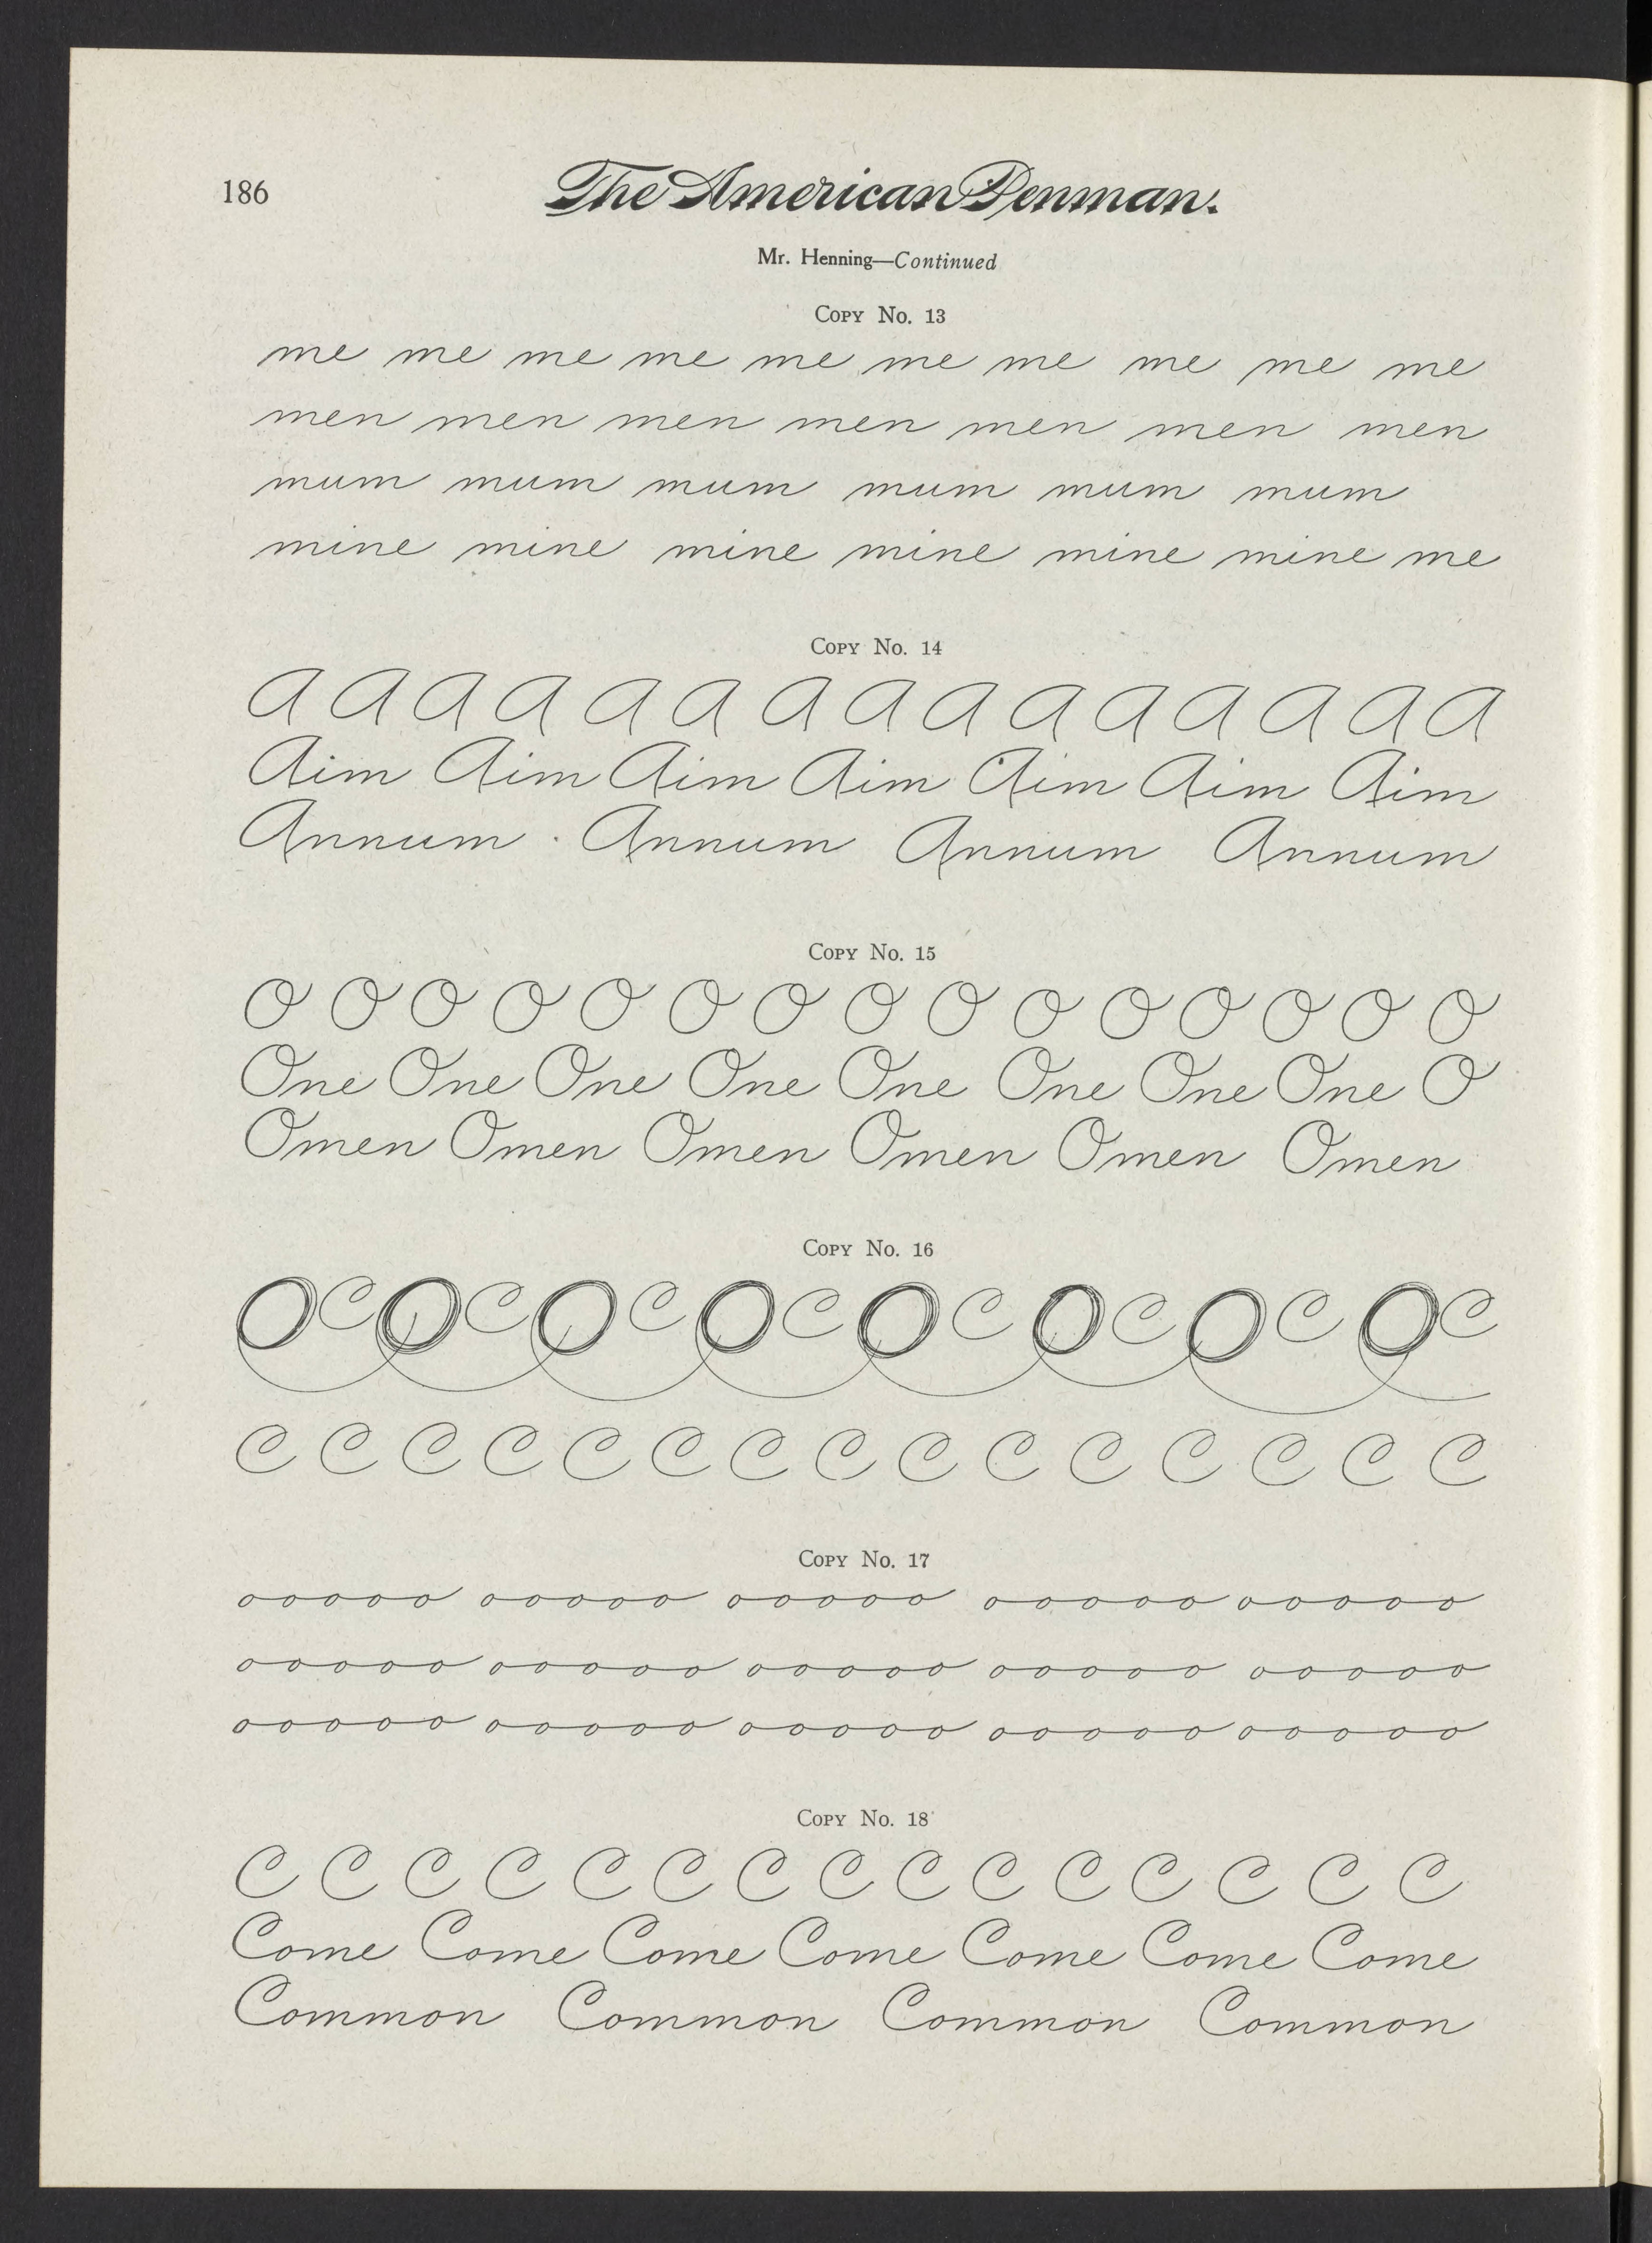 186
The American Penman.
Mr. Henning—Continued
Copy No. 13
me me me me me me me me me me
men men men men men men men
mum mum mum mum mum mum
mine mine mine mine mine mine me
Copy No. 14
A A A A A A A A A A A A A A A
Aim Aim Aim Aim Aim Aim Aim
Annum Annum Annum Annum
Copy No. 15
O O O O O O O O O O O O O O O
One One One One One One One One O
Omen Omen Omen Omen Omen Omen
Copy No. 16
O C O C O C O C O C O C O C O C
C C C C C C C C C C C C C C C
Copy No. 17
ooooo ooooo ooooo ooooo ooooo
ooooo ooooo ooooo ooooo ooooo
ooooo ooooo ooooo ooooo ooooo
Copy No. 18
C C C C C C C C C C C C C C C
Come Come Come Come Come Come Come
Common Common Common Common